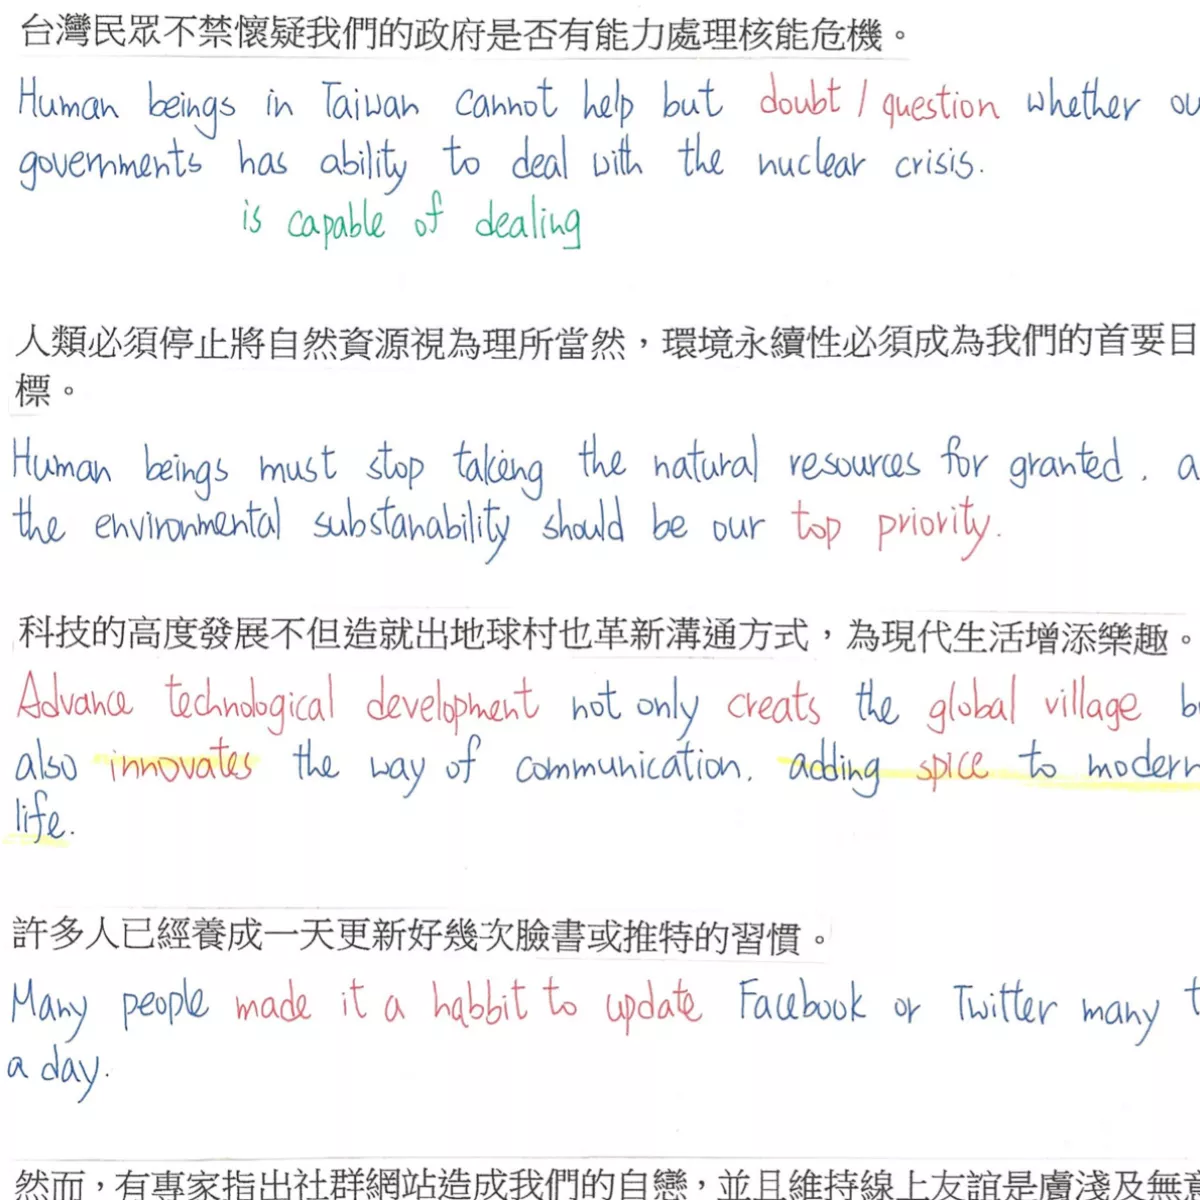 台灣民眾不禁懷疑我們的政府是否有能力處理核能危機。
Human beings in Taiwan cannot help but doubt / question whether ou
governments has ability to deal with the nuclear crisis.
is capable of dealing
人類必須停止將自然資源視為理所當然，環境永續性必須成為我們的首要目
標。
Human beings must stop taking the natural resources for granted. a
the environmental substanability should be our top priority.
科技的高度發展不但造就出地球村也革新溝通方式，為現代生活增添樂趣。
Advance technological development not only creats the global village b
also innovates the way of communication. adding spice to modern
life.
許多人已經養成一天更新好幾次臉書或推特的習慣。
Many people made it a habbit to update Facebook or Twitter many t
a day.
然而，有專家指出社群網站造成我們的自戀，並且維持線上友誼是膚淺及無意